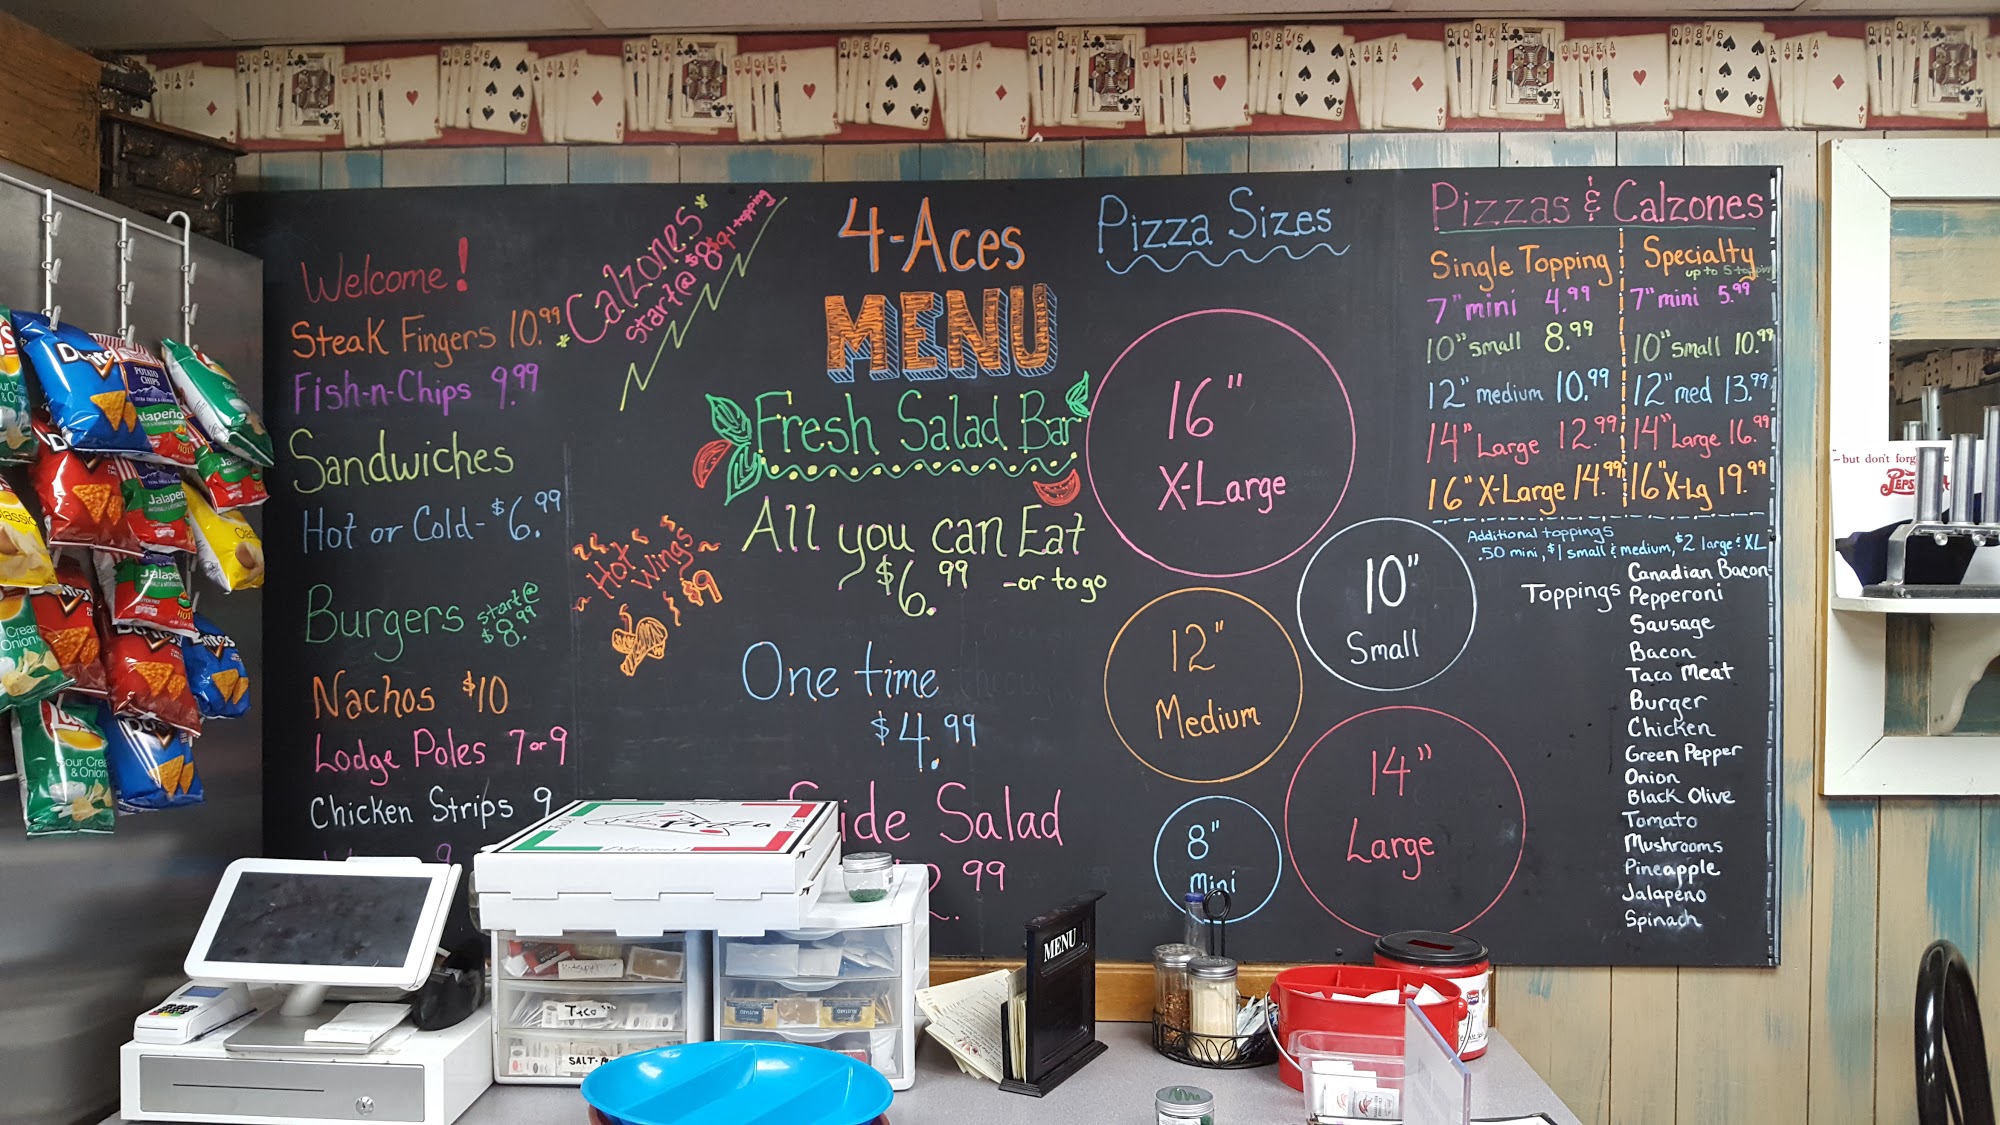 Welcome!
Steak Fingers 10.99
Fish-n-Chips 9.99
Sandwiches
Hot or Cold - $6.99
Burgers start @
$8.99
Nachos $10
Lodge Poles 7 or 9
Chicken Strips 9
*Calzones*
start @ $8.99 1 topping
Hot Wings
$9
4-Aces
MENU
Fresh Salad Bar
All you can Eat
$6.99 -or to go
One time
$4.99
Side Salad
2.99
Pizza Sizes
16"
X-Large
10"
Small
12"
Medium
14"
Large
8"
Mini
Pizzas & Calzones
Single Topping
7" mini 4.99
10" small 8.99
12" medium 10.99
14" Large 12.99
16" X-Large 14.99
Specialty
up to 5 topping
7" mini 5.99
10" small 10.99
12" med 13.99
14" Large 16.99
16" X-Lg 19.99
Additional toppings
.50 mini, $1 small & medium, $2 large & XL
Toppings
Canadian Bacon
Pepperoni
Sausage
Bacon
Taco Meat
Burger
Chicken
Green Pepper
Onion
Black Olive
Tomato
Mushrooms
Pineapple
Jalapeno
Spinach
MENU
Taco
SALT
Pizza
Delicious!
POTATO
CHIPS
Jalapeño
Jalapeño
Jalapeño
Sour Cream
& Onion
-but don't forg